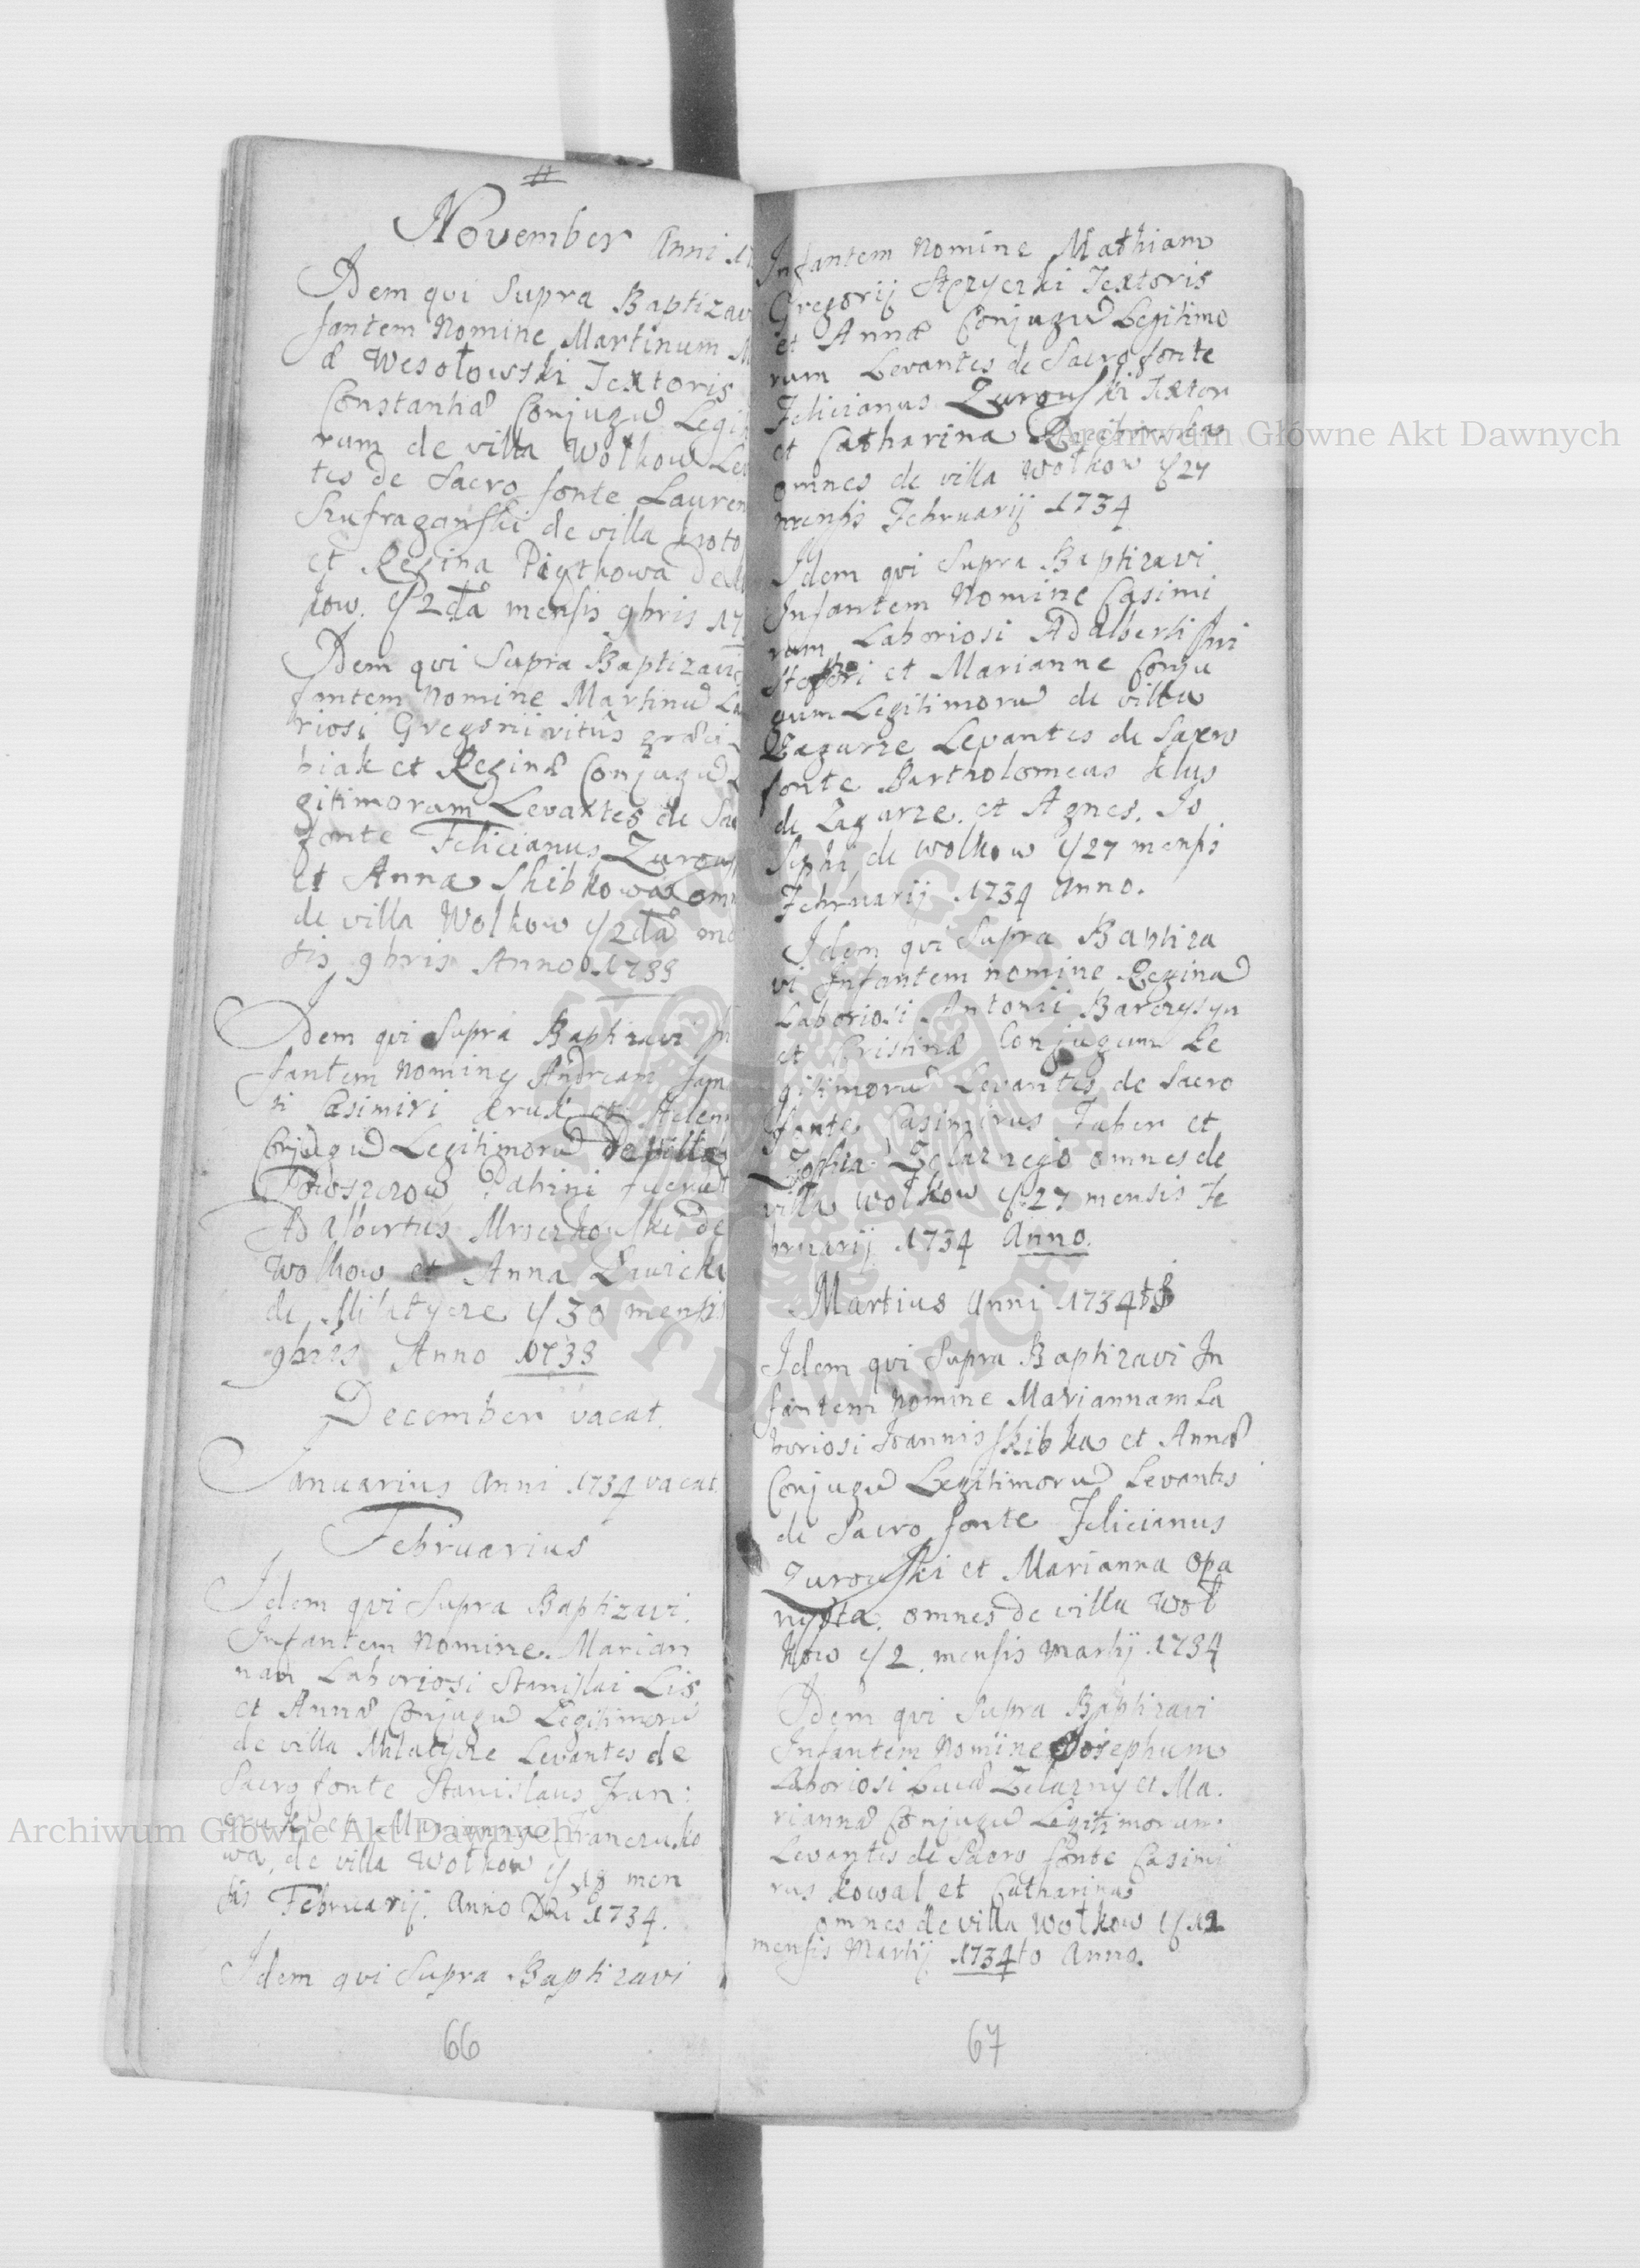 #
November Anni 17
Idem qui Supra Baptizav
fantem Nomine Martinum
Wesołowski Textoris
Constantiæ Conjugũ Legit
rum de villa Wołkow Lev
tes de Sacro fonte Lauren
de villa kroto
et Regina Piątkowa De
kow. 2da mensis 9bris 17
Idem qui Supra Baptizavi
fantem Nomine Martinũ La
riosi
biak et Reginæ Conjugũ Le
gitimorum Levantes de Sac
fonte Felicianus Zurows
et Anna Skibkowa omn
de villa Wolkow 2da me
sis 9bris Anno 1733
Idem qui Supra Baptizavi In
fantem Nomine Andream
Casimiri et Helen
Conjugũ Legitimorũ De villa
Patrini fuerũt
Adalbertus Mroczkowski de
Wolkow et Anna
de Milatycze 30 mensis
9bris Anno 1733
December vacat.
Januarius Anni 1734 vacat
Februarius
Idem qui Supra Baptizavi.
Infantem Nomine. Marian
nam Laboriosi Stanislai Lis
et Annæ Conjugũ Legitimorũ
de villa Milatycze Levantes de
Sacro fonte Stanislaus Fran:
czuk et Marianna Franczuko
wa, de villa Wołkow 18 men
sis Februarij. Anno Dni 1734.
Idem qui Supra Baptizavi
66
Infantem Nomine Mathiam
Gregorij Textoris
et Annæ Conjugũ Legitimo
rum Levantes de Sacro fonte
Felicianus Zurowski Textor
et Catharina
omnes de villa Wołkow 27
mensis Februarij 1734
Idem qui Supra Baptizavi
Infantem Nomine Casimi
rum Laboriosi Adalberti
et Marianne Conju
gum Legitimorũ de villa
Zagurze Levantes de Sacro
fonte Bartholomeus
de Zagurze. et Agnes. Jo
sephi, de Wolkow 27 mensis
Februarij 1734 Anno.
Idem qui Supra Baptiza
vi Infantem nomine Reginã
Laboriosi Antonii Barczysyn
et Cristinæ Conjugum Le
gitimorũ Levantes de Sacro
fonte Casimirus Faber et
Zophia Zelaznego omnes de
villa Wołkow 27 mensis Fe
bruarij 1734 Anno.
Martius Anni 1734to
Idem qui Supra Baptizavi In
fantem Nomine Mariannam La
boriosi Joannis Skibka et Annæ
Conjugũ Legitimorũ Levantes
de Sacro fonte Felicianus
Zurowski et Marianna Opa
nyota. omnes de villa Woł
kow 2. mensis Martij 1734
Idem qui Supra Baptizavi
Infantem Nomine Josephum
Laboriosi Lucæ Zelazny et Ma.
riannæ Conjugũ Legitimorum.
Levantes de Sacro fonte Casimi
rus kowal et Catharina
omnes de villa Wołkow 12
mensis Martij 1734to Anno.
67
Archiwum Główne Akt Dawnych
Archiwum Główne Akt Dawnych
ARCHIWUM GŁÓWNE AKT DAWNYCH